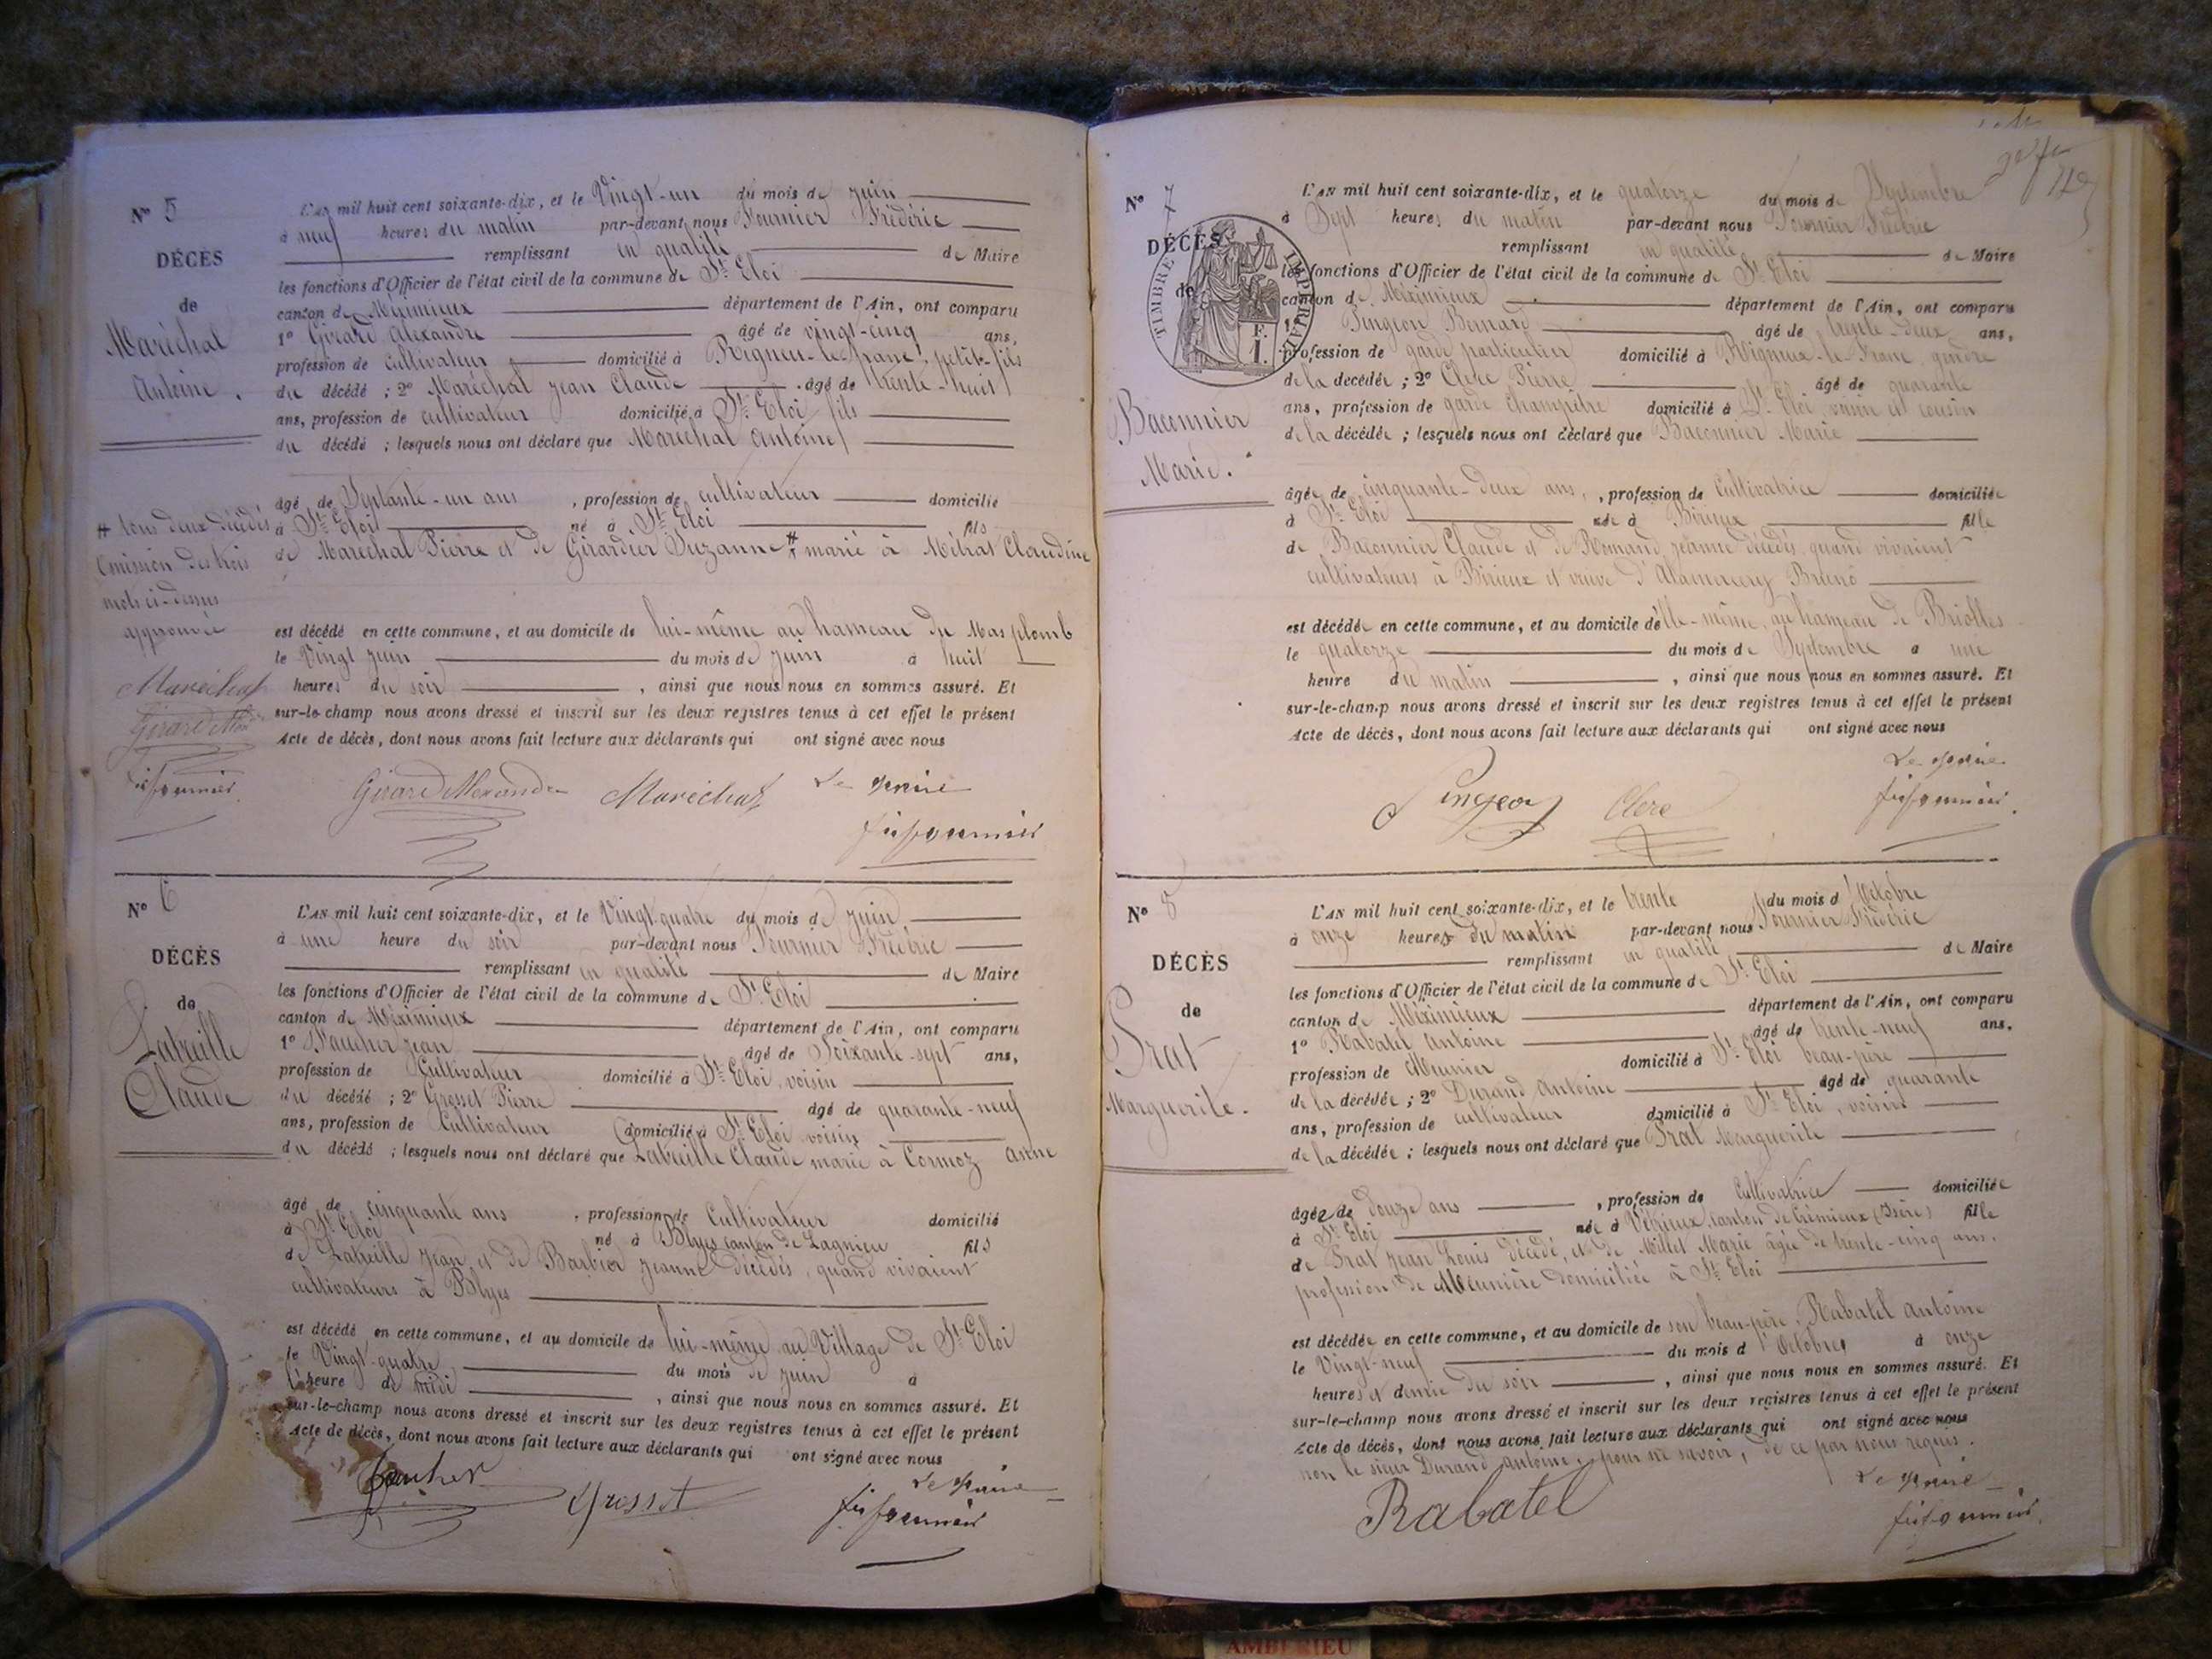 N° 5
DÉCÈS
de
Maréchal
Antoine.
L'AN mil huit cent soixante-dix, et le Vingt-un du mois de juin
à neuf heures du matin par-devant nous Fournier Frédéric
remplissant en qualité de Maire
les fonctions d'Officier de l'état civil de la commune de St Eloi
canton de Méximieux département de l'Ain, ont comparu
1° Girard Alexandre âgé de vingt-cinq ans,
profession de cultivateur domicilié à Rigneu-le-franc, petit-fils
du décédé ; 2° Maréchal Jean Claude âgé de trente-huit
ans, profession de cultivateur domicilié à St Eloi fils
du décédé ; lesquels nous ont déclaré que Maréchal Antoine
âgé de Septante-un ans, profession de cultivateur domicilié
à St Eloi né à St Eloi fils
de Maréchal Pierre et de Girardier Suzanne # marié à Métrat Claudine
# tous deux décédés
Omission des trois
mots ci-dessus
approuvée
Maréchal
Girard
Fournier
est décédé en cette commune, et au domicile de lui-même au hameau du Mas plomb
le Vingt juin du mois de juin à huit
heures du soir, ainsi que nous nous en sommes assuré. Et
sur-le-champ nous avons dressé et inscrit sur les deux registres tenus à cet effet le présent
Acte de décès, dont nous avons fait lecture aux déclarants qui ont signé avec nous
Girard Alexandre Maréchal Le Maire
Fournier
N° 6
DÉCÈS
de
Latreille
Claude
L'AN mil huit cent soixante-dix, et le Vingt-quatre du mois de juin
à une heure du soir par-devant nous Fournier Frédéric
remplissant en qualité de Maire
les fonctions d'Officier de l'état civil de la commune de St Eloi
canton de Méximieux département de l'Ain, ont comparu
1° Faucher Jean âgé de Soixante-sept ans,
profession de Cultivateur domicilié à St Eloi, voisin
du décédé ; 2° Grosset Pierre âgé de quarante-neuf
ans, profession de Cultivateur domicilié à St Eloi voisin
du décédé ; lesquels nous ont déclaré que Latreille Claude marié à Cormoz Anne
âgé de cinquante ans, profession de Cultivateur domicilié
à St Eloi né à Blyes canton de Lagnieu fils
de Latreille Jean et de Barbier Jeanne décédés, quand vivaient
cultivateurs à Blyes
est décédé en cette commune, et au domicile de lui-même au Village de St Eloi
le Vingt-quatre du mois de juin à
l'heure de midi, ainsi que nous nous en sommes assuré. Et
sur-le-champ nous avons dressé et inscrit sur les deux registres tenus à cet effet le présent
Acte de décès, dont nous avons fait lecture aux déclarants qui ont signé avec nous
Faucher Grosset Le Maire
Fournier
N° 7
DÉCÈS
de
TIMBRE IMPÉRIAL
1 F.
Baconnier
Marie.
L'AN mil huit cent soixante-dix, et le quatorze du mois de Septembre
à Sept heures du matin par-devant nous Fournier Frédéric
remplissant en qualité de Maire
les fonctions d'Officier de l'état civil de la commune de St Eloi
canton de Méximieux département de l'Ain, ont comparu
1° Pingeon Bernard âgé de trente-deux ans,
profession de garde particulier domicilié à Rigneux-le-Franc, gendre
de la décédée ; 2° Clerc Pierre âgé de quarante
ans, profession de garde champêtre domicilié à St Eloi, voisin et cousin
de la décédée ; lesquels nous ont déclaré que Baconnier Marie
âgée de cinquante-deux ans, profession de Cultivatrice domiciliée
à St Eloi née à Birieux fille
de Baconnier Claude et de Romand Jeanne décédés, quand vivaient
cultivateurs à Birieux et veuve d'Alamercery Bruno
est décédée en cette commune, et au domicile d'elle-même, au hameau de Briolles
le quatorze du mois de Septembre à une
heure du matin, ainsi que nous nous en sommes assuré. Et
sur-le-champ nous avons dressé et inscrit sur les deux registres tenus à cet effet le présent
Acte de décès, dont nous avons fait lecture aux déclarants qui ont signé avec nous
Le Maire
Pingeon Clerc Fournier
N° 8
DÉCÈS
de
Prat
Marguerite.
L'AN mil huit cent soixante-dix, et le trente du mois d'Octobre
à onze heures du matin par-devant nous Fournier Frédéric
remplissant en qualité de Maire
les fonctions d'Officier de l'état civil de la commune de St Eloi
canton de Méximieux département de l'Ain, ont comparu
1° Rabatel Antoine âgé de trente-neuf ans,
profession de Meunier domicilié à St Eloi beau-père
de la décédée ; 2° Durand Antoine âgé de quarante
ans, profession de cultivateur domicilié à St Eloi, voisin
de la décédée ; lesquels nous ont déclaré que Prat Marguerite
âgée de douze ans, profession de Cultivatrice domiciliée
à St Eloi née à canton de Crémieux (Isère) fille
de Prat Jean Louis décédé, et de Millet Marie âgée de trente-cinq ans,
profession de Meunière domiciliée à St Eloi
est décédée en cette commune, et au domicile de son beau-père, Rabatel Antoine
le Vingt-neuf du mois d'Octobre à onze
heures et demie du soir, ainsi que nous nous en sommes assuré. Et
sur-le-champ nous avons dressé et inscrit sur les deux registres tenus à cet effet le présent
Acte de décès, dont nous avons fait lecture aux déclarants qui ont signé avec nous
non le sieur Durand Antoine, pour ne savoir, de ce par nous requis.
Rabatel Le Maire
Fournier
AMBERIEU